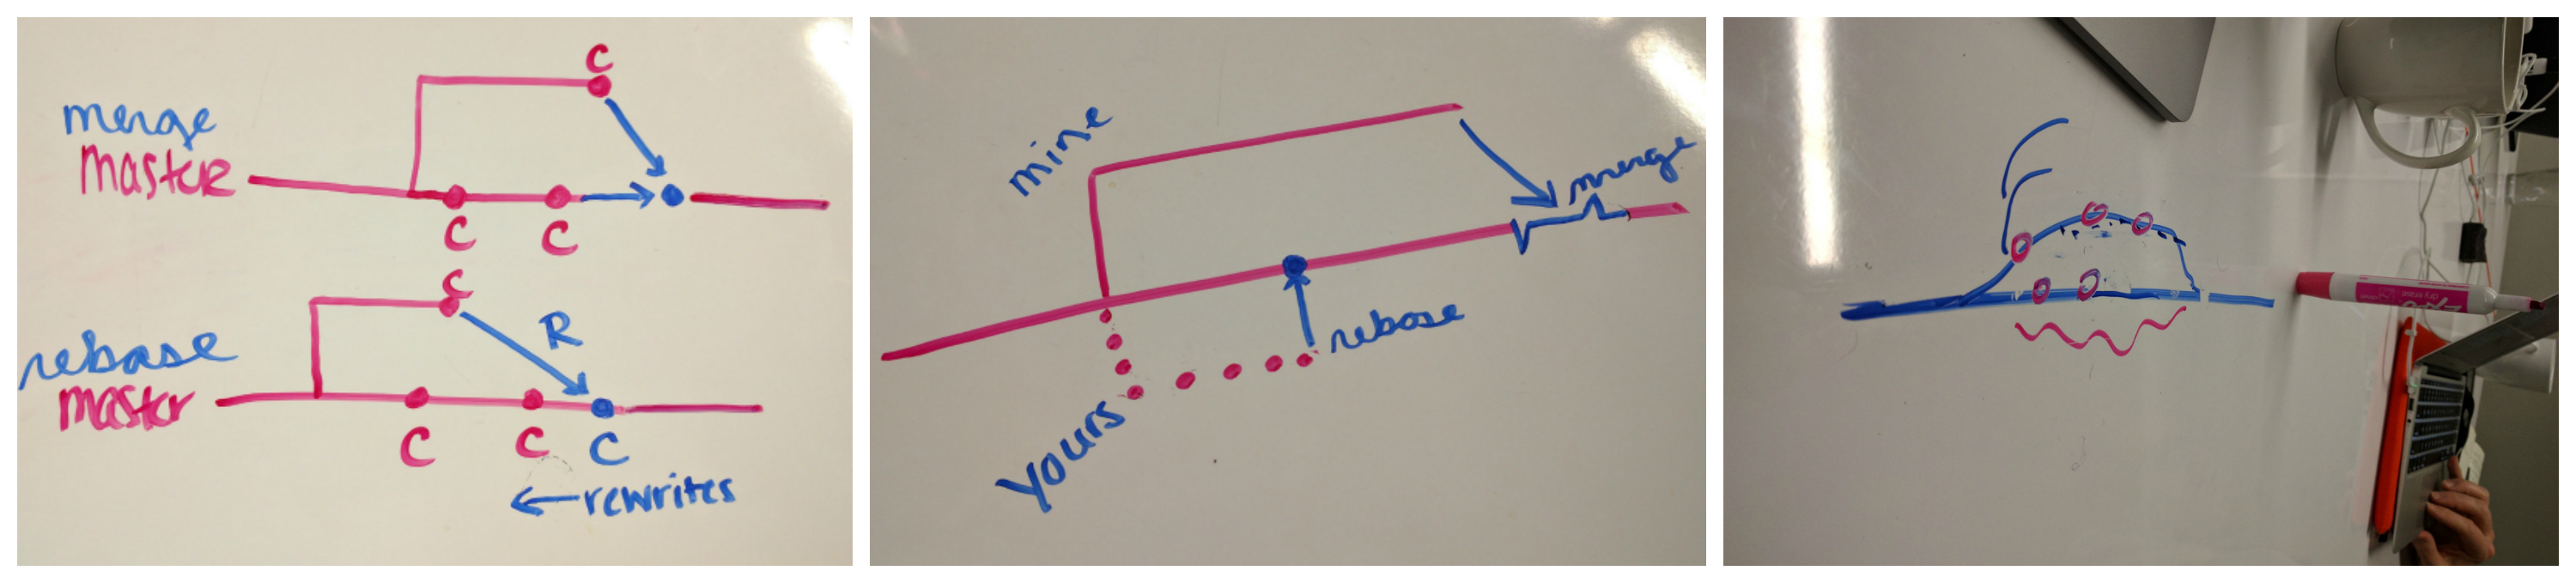 C
merge
master
C C
C
R
rebase
master
C C C
← rewrites
mine
merge
rebase
yours